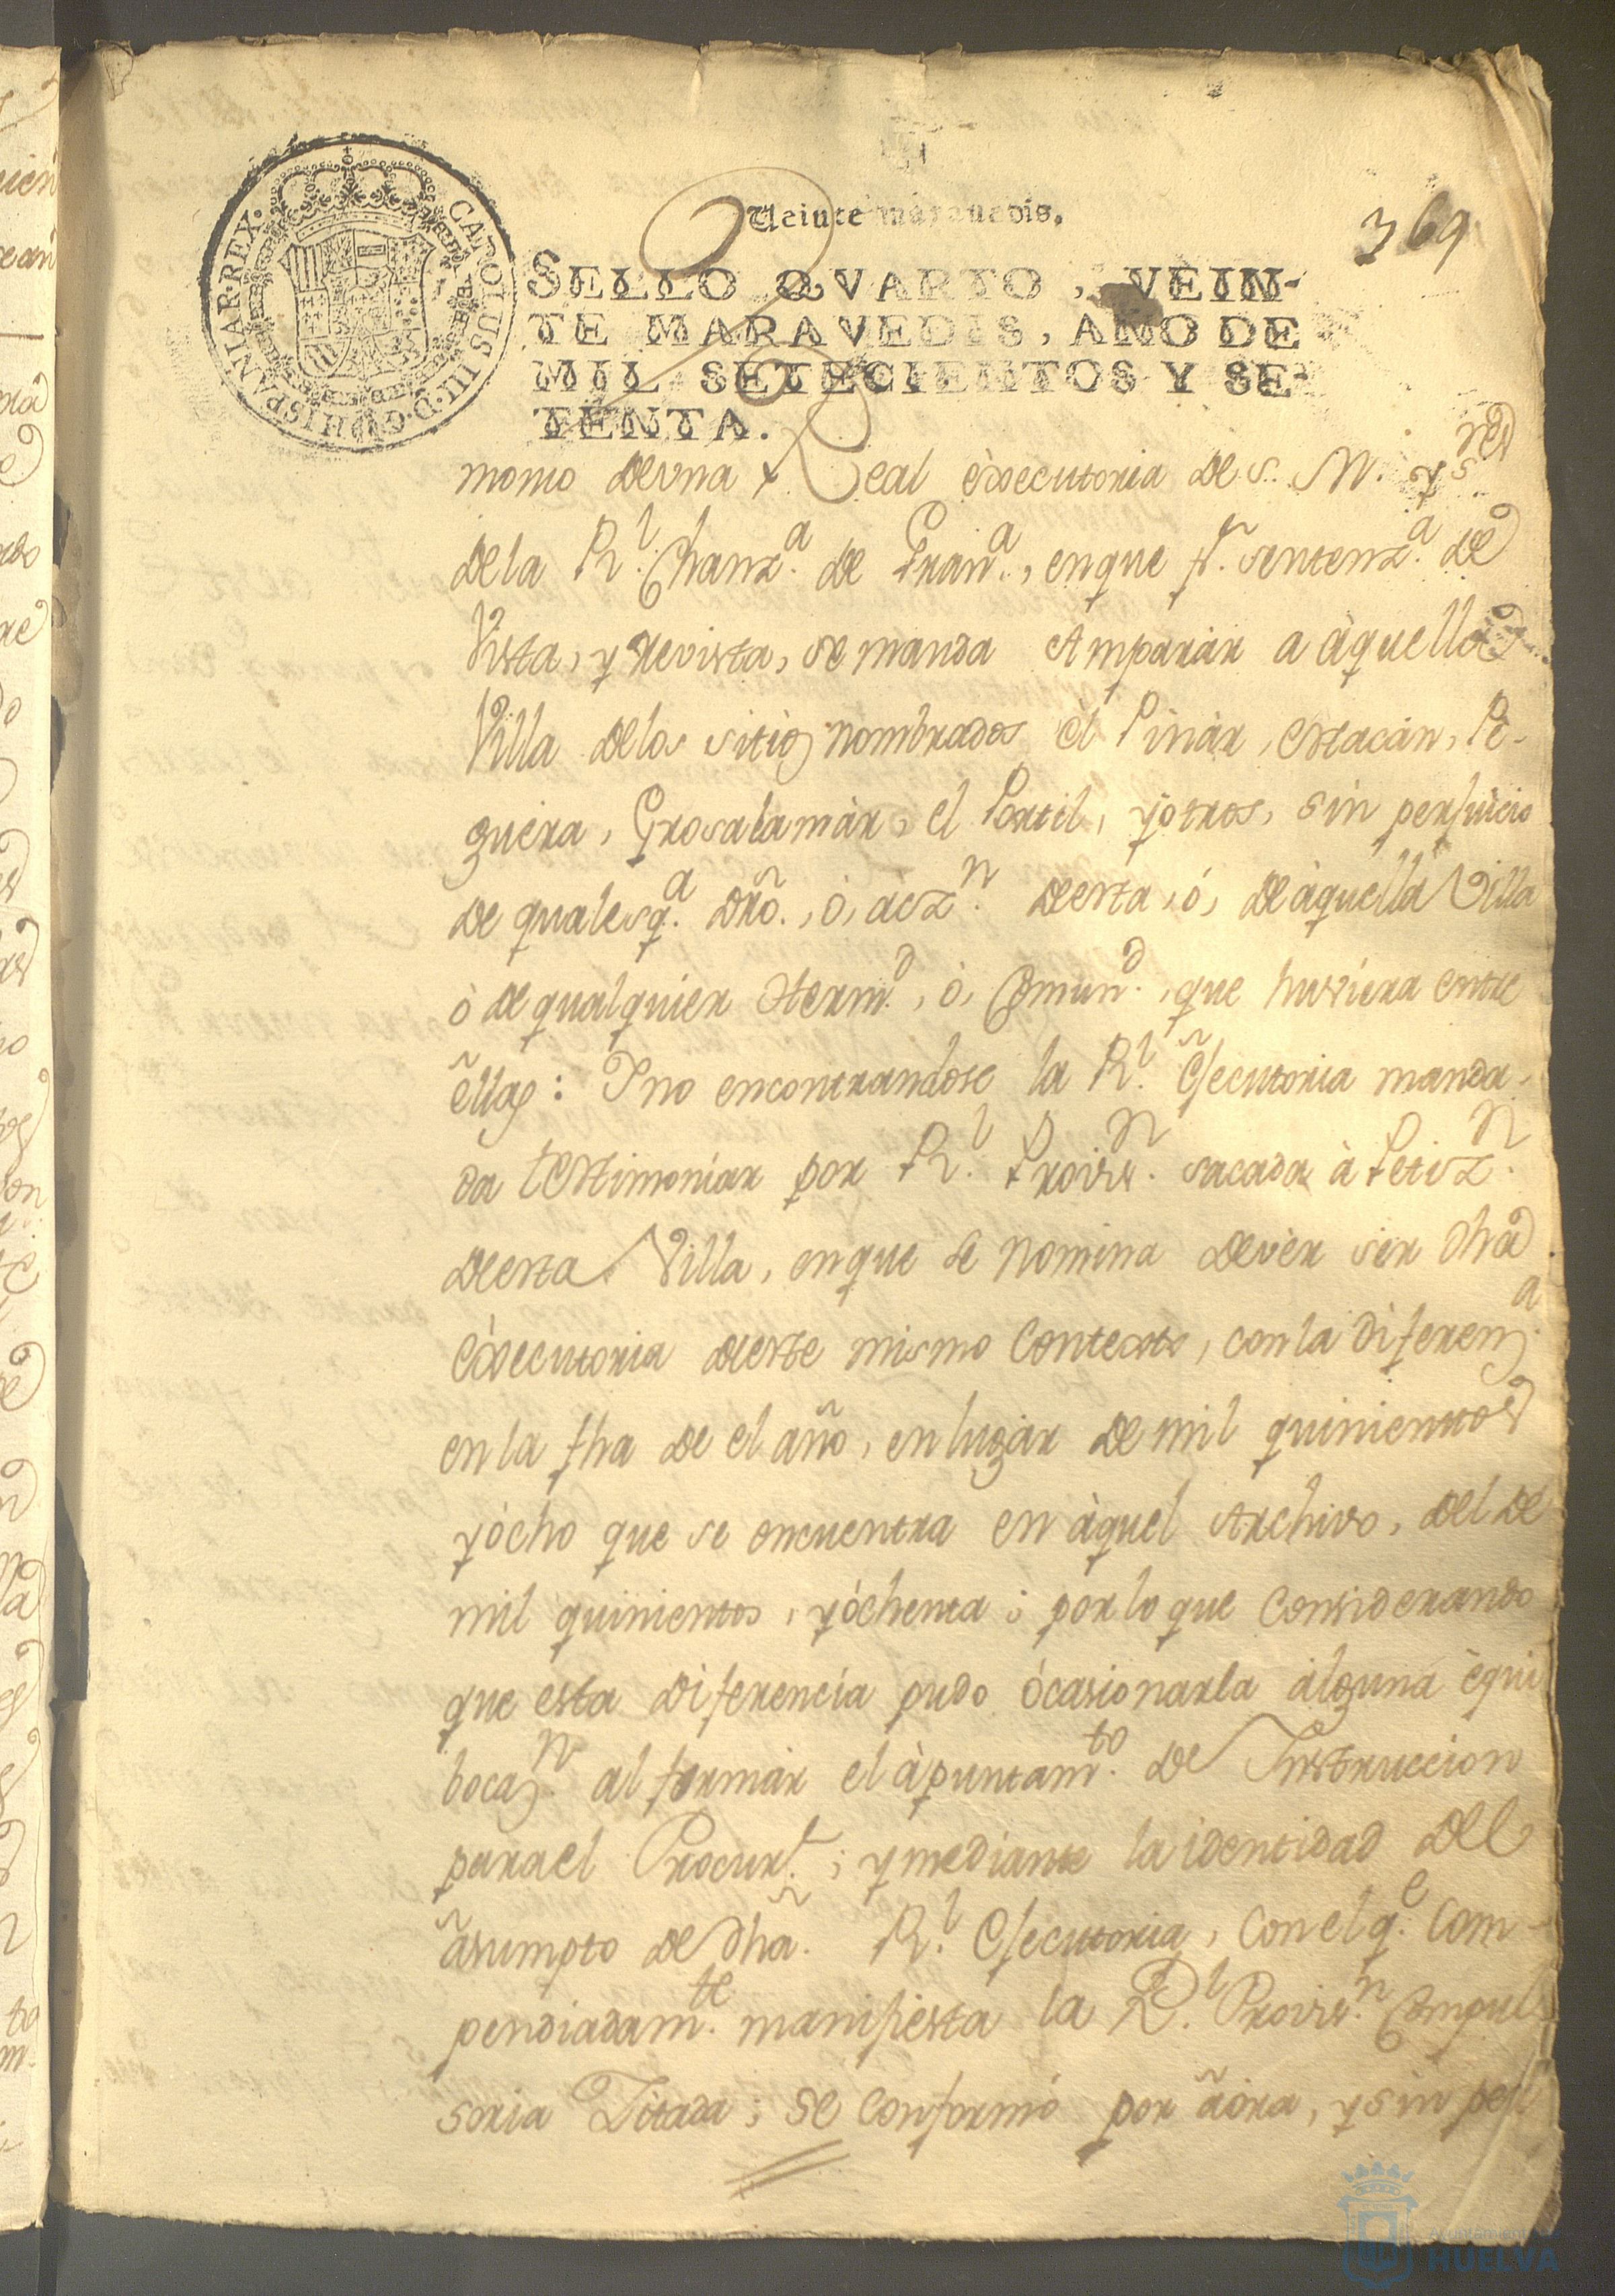 CAROLUS III. D. G. HISPANIAR. REX.
Veinte maravedis.
369
SELLO QVARTO, VEIN-
TE MARAVEDIS, AÑO DE
MIL SETECIENTOS Y SE-
TENTA.
monio de vna Real èxecutoria de S. M. y s.res
de la R.l Chanz.a de Gran.a, en que p.r sentenz.a de
Vista, y Revista, se manda Amparàr a àquella
Villa de los sitios nombrados èl Pinàr, estacàn, Pe-
guera, Grosalamàr, el Portil, y òtros, sin perjuicio
de qualesq.a dro., ò, àcz.n de esta, ó, de àquella Villa
ò de qualquier Herm.d, ò, Comun.d, que huviera entre
ellas: Y no encontrandose la R.l Ejecutoria manda-
da testimoniar por R.l Provis.n sacada à Petiz.n
de esta Villa, en que se nomina devèr ser dha
èxecutoria de este mismo Contexto, con la diferenz.a
en la fha de el año, en lugàr de mil quinientos
y òcho que se encuentra en àquel Archivo, del de
mil quinientos, y óchenta; por lo que Considerando
que esta diferencía pudo ócasionarla àlguna èqui
bocaz.n al formàr el àpuntam.to de Instruccion
para el Procur.r; y mediante la identidad del
asumpto de dha. R.l Ejecutoria, con el q.e Com-
pendiadam.te manifiesta la R.l Provis.n Compul
soria Zitada; se Conformó por aòra, y sin perj
Ayuntamiento
HUELVA